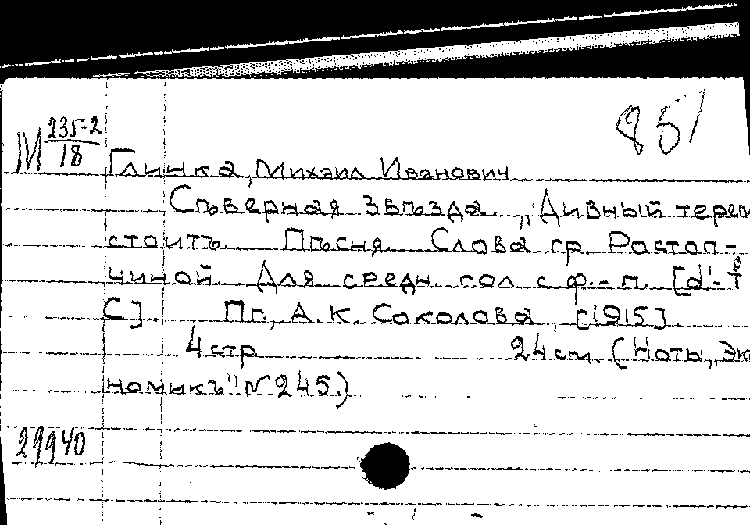 851
М 235-2/18
Глинка, Михаил Иванович
Съверная звъзда. „Дивный терем
стоитъ. Пъсня. Слова гр. Растоп-
чиной. Для средн. гол. с ф.-п. [d'-f²
C]. Пг., А.К. Соколова, [1915].
4 стр 24 см. (Ноты „Эк
номикъ" № 245.)
29940